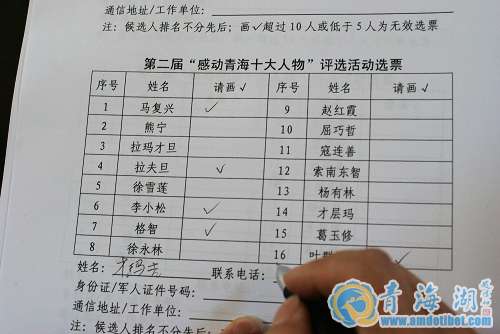 通信地址/工作单位:
注:候选人排名不分先后;画✓超过10人或低于5人为无效选票
第二届“感动青海十大人物”评选活动选票
序号 姓名 请画✓ 序号 姓名 请画✓
1 马复兴 ✓ 9 赵红霞
2 熊宁 10 屈巧哲
3 拉玛才旦 11 寇连善
4 拉夫旦 ✓ 12 索南东智
5 徐雪莲 13 杨有林
6 李小松 ✓ 14 才层玛
7 格智 ✓ 15 葛玉修
8 徐永林 16 叶 ✓
姓名: 联系电话:
身份证/军人证件号码:
通信地址/工作单位:
注:候选人排名不分先后;画
青海湖
www.amdotibet.com